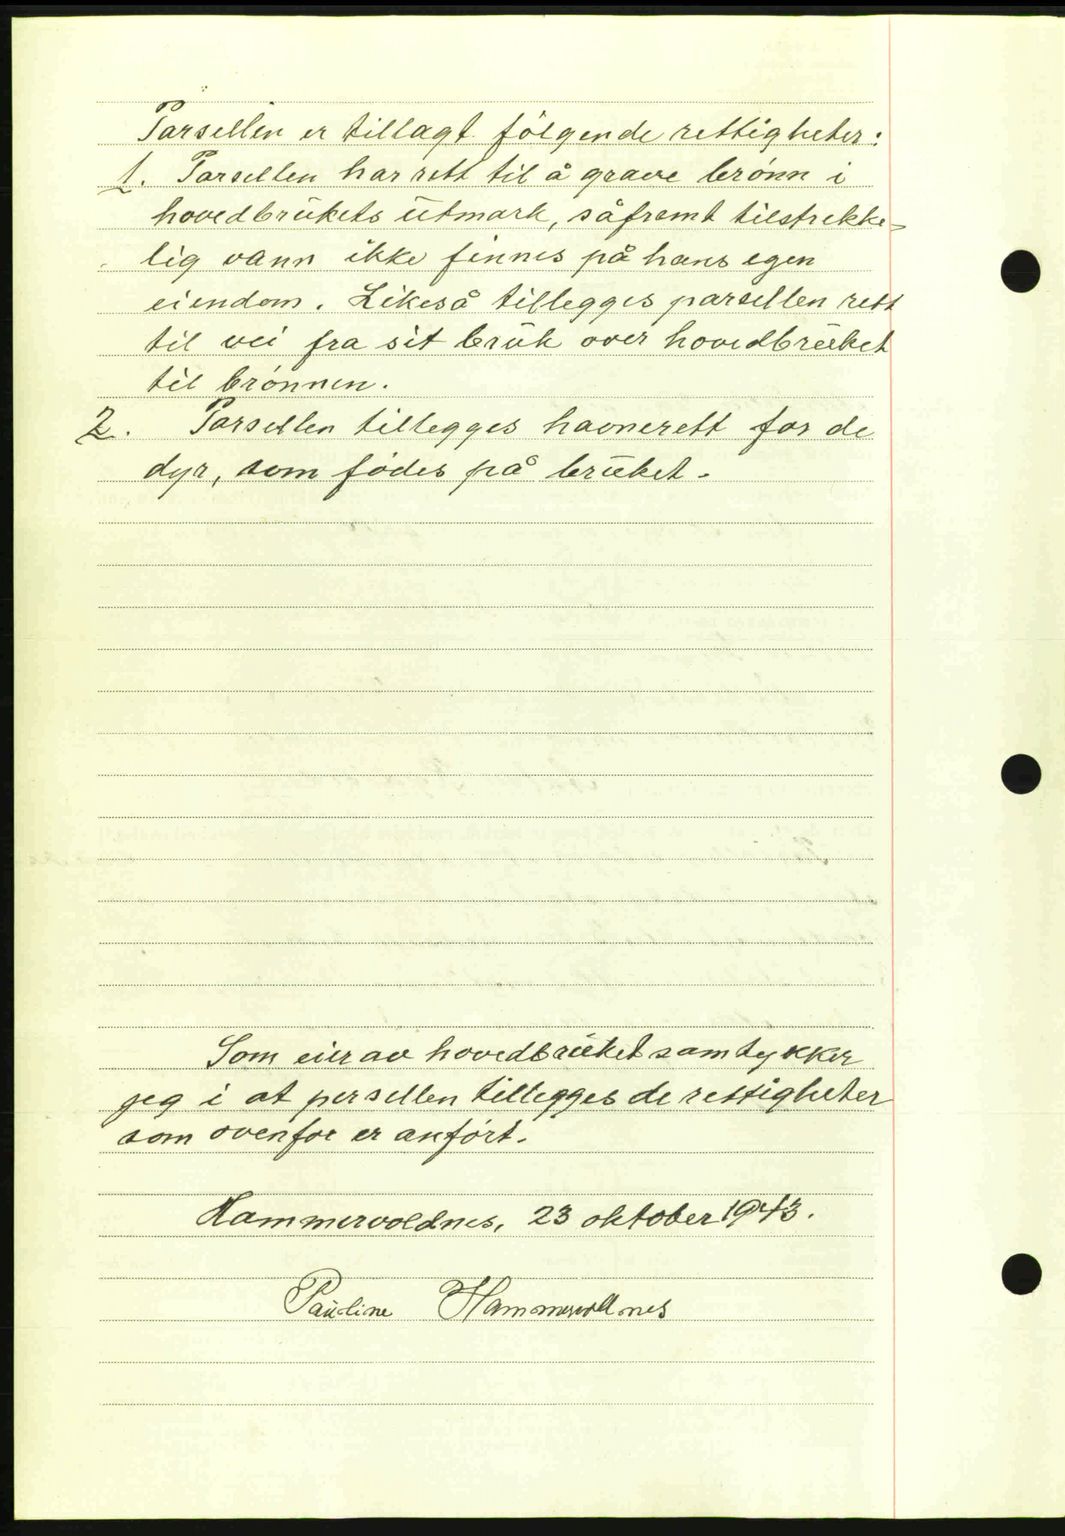 Parsellen er tillagt følgende rettigheter:
1. Parsellen har rett til å grave brønn i
hovedbrukets utmark, såfremt tilstrekke-
lig vann ikke finnes på hans egen
eiendom. Likeså tillegges parsellen rett
til vei fra sit bruk over hovedbruket
til brønnen.
2. Parsellen tillegges havnerett for de
dyr, som fødes på bruket.
Som eier av hovedbruket samtykker
jeg i at persellen tillegges de rettigheter
som ovenfor er anført.
Hammervoldnes, 23 oktober 1943.
Pauline Hammervollnes